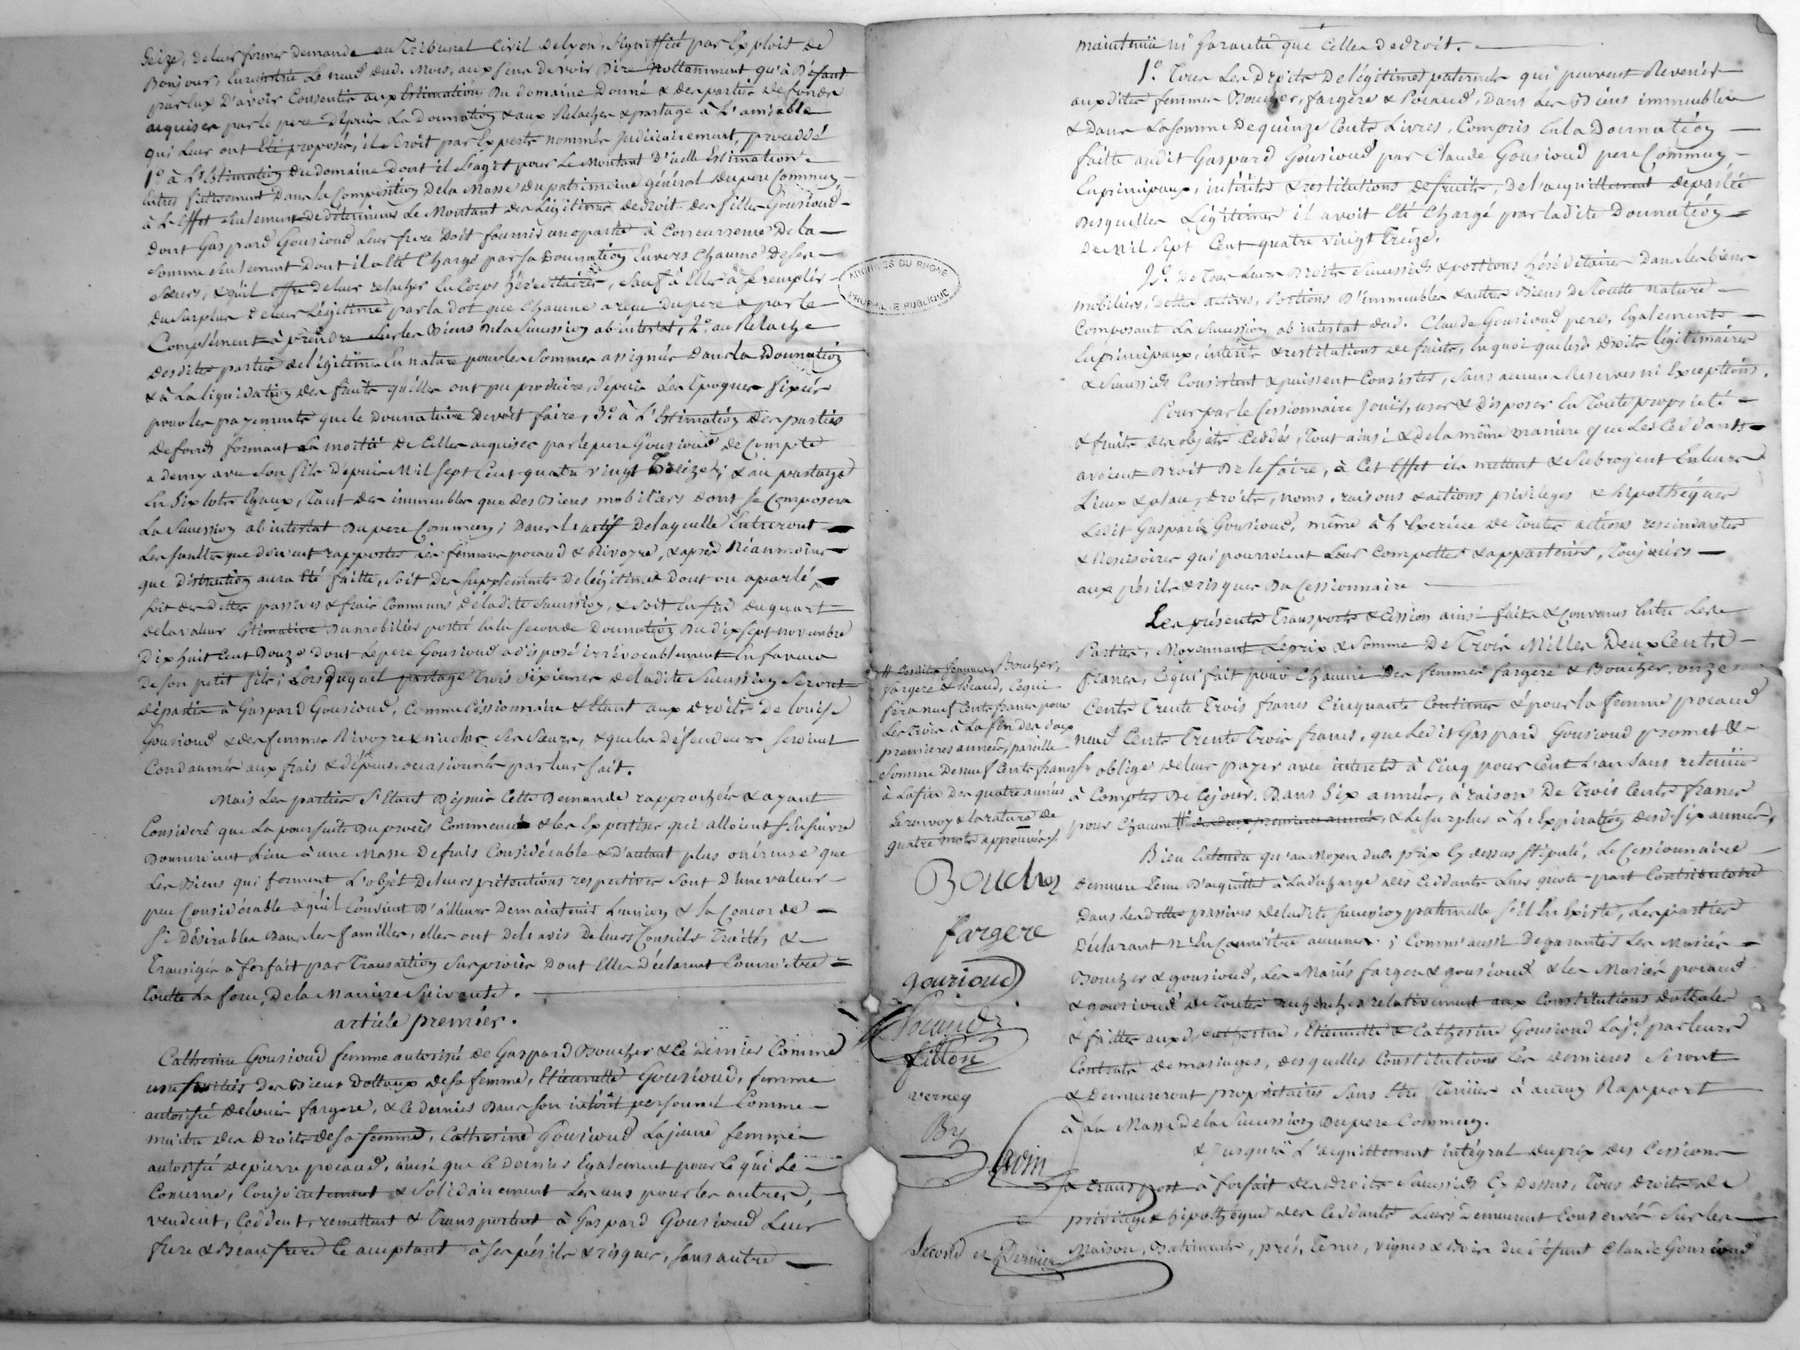 Seize, de leur former demande au Tribunal Civil de Lyon, signiffiée par Exploit de
Bonjour, Le neuf dud. Mois, aux fins de voir Dire qu'à Défaut
par Eux D'avoir Consentis aux Estimations Du domaine Donné & des parties de fonds
acquises par le pere Dépuis La Dounation & aux Relaches & partage à L'amiable
qui Leur ont Eté proposés, il Seroit par Experts nommés judiciairement, procédé
1º à L'Estimation Du domaine dont il s'agit pour Le Montant D'icelle Estimation
Entrer fictivement Dans la Composition de la Masse du patrimoine général du pere Commun,
à L'Effet seulement de déterminer Le Montant des Légitimes de droit des filles Gourioud
dont Gaspard Gourioud Leur frere Doit fournir une partie à Concurrence de la
Somme seulement Dont il a Eté Chargé par sa Dounation Envers Chacune de ses
Sœurs, & qu'il offre de leur relacher En Corps héréditaires, sauf à Elles à se remplir
du Surplus de leur Légitime par la dot que Chacune a reçue du pere & par le
Complément à prendre sur les Biens de la Succession ab intestat, 2º au Relache
Desdites parties de légitime En nature pour les Sommes assignées dans la Dounation
& à La liquidation des fruits qu'elles ont pu produire, dépuis Les Epoques fixées
pour les payements que le Dounataire devoit faire, 3º à L'Estimation des parties
de fonds formant La moitié de Celles acquises par le pere Gourioud de Compte
a demy avec Son fils Dépuis Mil sept Cent quatre vingt Treize; & au partage
En Six lots Egaux, Tant des immeubles que des Biens mobiliers dont se Composera
La Succession ab intestat Du pere Commun; Dans l'actif de laquelle Entreront
Les Sommes que doivent rapporter Les femmes pocaud & Rivoyre, & après Néanmoins
que distraction aura Eté faitte, soit des supplements de légitime dont on a parlé,
soit des dettes passives & frais Communs de ladite Succession, & soit Enfin du quart
de la valeur Estimative Du mobilier porté En la seconde Dounation Du dix sept novembre
Dix huit Cent Douze dont Le pere Gourioud a disposé irrévocablement En faveur
de son petit fils; Lors duquel partage Trois Sixiemes de ladite Succession Seront
départis à Gaspard Gourioud, Comme Cessionnaire & Etant aux Droits De louise
Gourioud & des femmes Rivoyre & nicolas Ses Sœurs, & que les Défendeurs seroient
Condamnés aux frais & dépens occasionnés par leur fait.
Mais Les parties S'Etant Dépuis Cette Demande rapprochées & ayant
Consideré que La poursuite Du procès Commencé & les Expertises qui alloient S'Ensuivre
Donneroient Lieu à une Masse de frais Considérable & d'autant plus onéreuse que
Les Biens qui forment L'objet de leurs prétentions respectives Sont D'une valeur
peu Considérable & qu'il Convient D'ailleurs de maintenir L'union & la Concorde
Si désirables Dans les familles, elles ont de l'avis de leurs Conseils Traité, &
Transigé à forfait par Transaction Sur procès Dont Elles Déclarent Connoitre
Toutte La force, de la Maniere Suivante.
article premier.
Catherine Gourioud femme autorisée de Gaspard Boucher & Ce Dernier Comme
usufruitier des Biens Dottaux de sa femme, Etiennette Gourioud, femme
autorisée de louis fargere, & ce dernier Dans son intérêt personnel Comme
maitre des Droits de sa femme, Catherine Gourioud La jeune femme
autorisée de pierre pocaud, ainsi que Ce Dernier Egalement pour Ce qui Le
Concerne, Conjointement & Solidairement Les uns pour les autres,
vendent, Ceddent, remettent & Transportent à Gaspard Gourioud Leur
frere & Beau frere Ce acceptant à Ses périls & risques, sans autre
ARCHIVES DU RHONE
maintenüe ni Garantie que Celles de droit.
1º Tous Les Droits de légitimes paternels qui peuvent Revenir
auxdittes femmes Boucher, fargere & Pocaud, dans Les Biens immeubles
& dans La Somme de quinze Cents Livres, Compris En la Dounation
faitte audit Gaspard Gourioud par Claude Gourioud pere Commun,
En principaux, intérêts & restitutions de fruits, de l'acquittement de partie
Desquelles Légitimes il avoit Eté Chargé par ladite Dounation
de Mil Sept Cent quatre vingt Treize.
2º De Tous Leurs Droits Successifs & portions héréditaires Dans les biens
mobiliers, dettes actives, portions D'immeubles & autres Biens de Toutte nature
Composant La Succession ab intestat dud. Claude Gourioud pere, Egalement
En principaux, intérêts & restitutions de fruits, En quoi que lesd. droits légitimaires
& Successifs Consistent & puissent Consister, Sans aucunes Reserves ni Exceptions.
Pour par le Cessionnaire Jouir, user & disposer En Toute propriété
& fruits des objets Ceddés, Tout ainsi & de la même maniere que Les Ceddants
avoient Droit De le faire, à Cet Effet ils mettent & Subrogent En leurs
Lieux & place, droits, noms, raisons & actions privileges & hipothéques
Ledit Gaspard Gourioud, même à l'Exercice de Touttes actions rescindantes
& Rescisoires qui pourroient Leur Competter & appartenir, Toujours
aux périls & risques Du Cessionnaire
Les présents Transports & Cession ainsi faits & Convenus Entre Les
Parties, Moyennant Le prix & Somme De Trois Milles Deux Cents
francs, Ce qui fait pour Chacune des femmes fargere & Boucher, onze
Cents Trente Trois francs Cinquante Centimes & pour la femme pocaud
neuf Cents Trente Trois francs, que Ledit Gaspard Gourioud promet &
s'oblige de leur payer avec intérêts à Cinq pour Cent L'an Sans retenüe
à Compter De Ce jour, Dans Six années, à raison De Trois Cents francs
pour Chacune # & Le Surplus à L'Expiration desd. Six années.
# Desdites femmes Boucher,
fargere & Pocaud, Ce qui
fera neuf Cents francs pour
Les Trois à La fin des deux
premieres années, pareille
Somme De neuf Cents francs
à La fin Des quatre années
Le renvoy & La rature de
quatre mots approuvés.
Bien Entendu qu'au Moyen dud. prix Cy dessus Stipulé, Le Cessionnaire
demeure Tenu D'acquitter à La décharge des Ceddants Leur quote part Contributoire
Dans Les dettes passives de ladite Succession paternelle S'il En Existe, Les parties
Déclarant N'En Connoitre aucunes; Comm' aussi De garantir Les Mariés
Boucher & gourioud, Les Mariés fargere & gourioud & les Mariés pocaud
& gourioud de Touttes recherches relativement aux Constitutions dottales
& faittes auxd. Catherine, Etiennette & Catherine Gourioud La je. par leurs
Contrats de mariages, desquelles Constitutions Ces dernieres Seront
& Demeureront propriétaires Sans Etre Tenües à aucun Rapport
à La Masse de la Succession Du pere Commun.
& jusqu'à L'acquittement intégral du prix des Cessions
& transport à forfait des droits Successifs Cy Dessus, Tous Droits de
privilege & hipothéque des Ceddants Leurs Demeurent Conservés Sur Les
Maison, Batiments, prés, Terres, vignes & Bois du défunt Claude Gourioud
Boucher
fargere
gourioud
Pocaud
fillon
verney
By
Second et Dernier